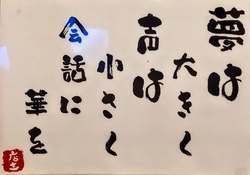 夢は
大きく
声は
小さく
会話に
華を